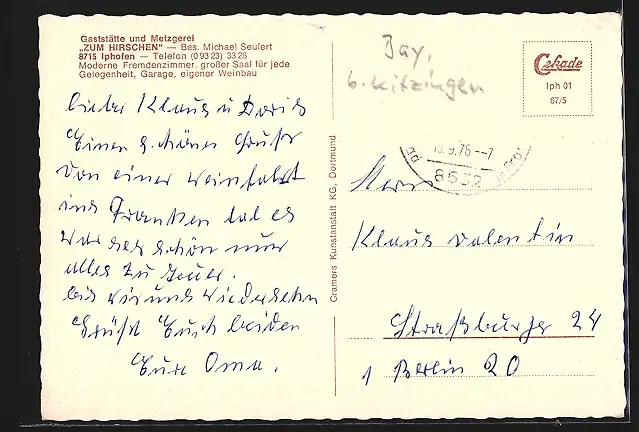 Gaststätte und Metzgerei
„ZUM HIRSCHEN“ — Bes. Michael Seufert
8715 Iphofen — Telefon (0 93 23) 33 26
Moderne Fremdenzimmer, großer Saal für jede
Gelegenheit, Garage, eigener Weinbau
Bay,
b. Kitzingen
Cekade
Iph 01
67/5
Lieber Klaus u Doris
Einen schönen Gruß
von einer Weinfahrt
ins Franken tal es
war sehr schön nur
alles zu teuer.
bis wir uns wiedersehn
Grüßt Euch beiden
Eure Oma.
Cramers Kunstanstalt KG, Dortmund
9.76--7
8632
Herrn
Klaus Valentin
Straßburger 24
1 Berlin 20